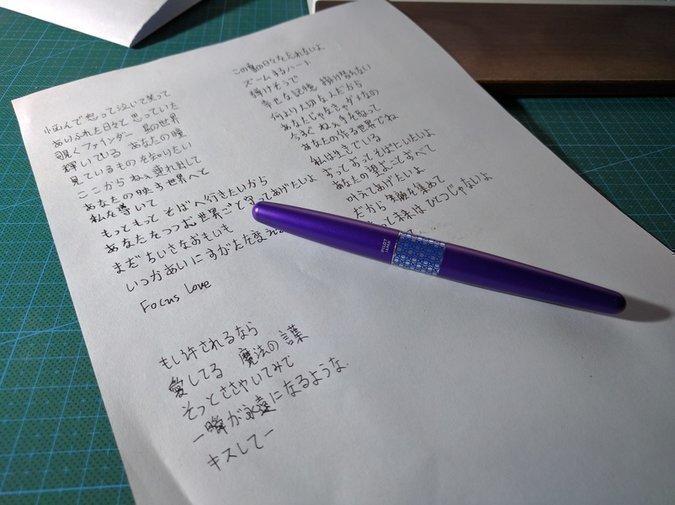 悩んで想って泣いて笑って
ありふれた日々と思っていた
覗くファインダー 君の世界
輝いている あなたの瞳
見ているものを知りたい
ここから ねぇ 連れ出して
あなたの映す世界へと
私を導いて
もっともっと そばへ行きたいから
あなたをつつむ世界ごと守ってあげたいよ
まだちいさなおもいも
いつかあいにすがたを変え
Focus Love
もし許されるなら
愛してる 魔法の言葉
そっとささやいてみて
一瞬が永遠になるような
キスしてー
日々を忘れないよ
ズームするハート
弾けそうで
幸せな記憶 掛け替えない
何より大切な人だから
あなたじゃなきゃダメなの
今すぐ ねぇ 手を取って
あなたの作る世界でね
私は生きている
ずっとずっとそばにいたいよ
あなたの望むことすべて
叶えてあげたいよ
だから 集めて
って未来はひとつじゃないよ
PILOT
JAPAN